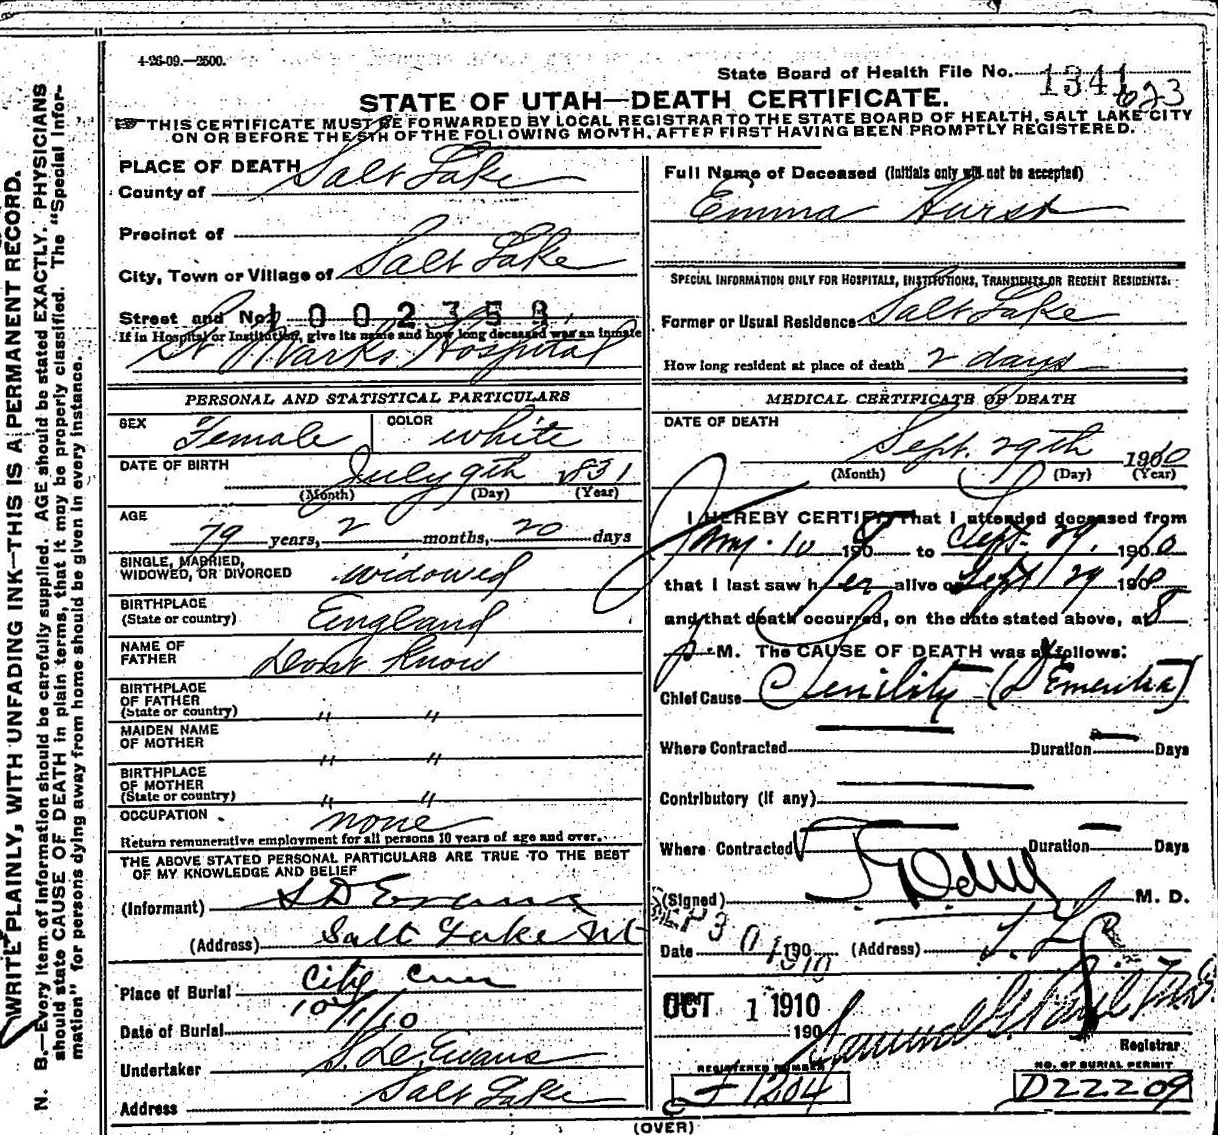 4-26-09.—2500.
State Board of Health File No. 1341 623
STATE OF UTAH—DEATH CERTIFICATE.
THIS CERTIFICATE MUST BE FORWARDED BY LOCAL REGISTRAR TO THE STATE BOARD OF HEALTH, SALT LAKE CITY
ON OR BEFORE THE 5TH OF THE FOLLOWING MONTH. AFTER FIRST HAVING BEEN PROMPTLY REGISTERED.
WRITE PLAINLY, WITH UNFADING INK—THIS IS A PERMANENT RECORD.
N. B.—Every item of information should be carefully supplied. AGE should be stated EXACTLY. PHYSICIANS
should state CAUSE OF DEATH in plain terms, that it may be properly classified. The "Special Infor-
mation" for persons dying away from home should be given in every instance.
PLACE OF DEATH
County of Salt Lake
Precinct of
City, Town or Village of Salt Lake
Street and No. 1002358
If in Hospital or Institution, give its name and how long deceased was an inmate
St Marks Hospital
PERSONAL AND STATISTICAL PARTICULARS
SEX Female COLOR white
DATE OF BIRTH July 9th 1831
(Month) (Day) (Year)
AGE
79 years, 2 months, 20 days
SINGLE, MARRIED,
WIDOWED, OR DIVORCED widowed
BIRTHPLACE
(State or country) England
NAME OF
FATHER Dont Know
BIRTHPLACE
OF FATHER
(State or country) " "
MAIDEN NAME
OF MOTHER " "
BIRTHPLACE
OF MOTHER
(State or country) " "
OCCUPATION none
Return remunerative employment for all persons 10 years of age and over.
THE ABOVE STATED PERSONAL PARTICULARS ARE TRUE TO THE BEST
OF MY KNOWLEDGE AND BELIEF
(Informant) S D Evans
(Address) Salt Lake Ut
Place of Burial City Cem
Date of Burial 10/1/10
Undertaker S. D. Evans
Address Salt Lake
Full Name of Deceased (Initials only will not be accepted)
Emma Hurst
SPECIAL INFORMATION ONLY FOR HOSPITALS, INSTITUTIONS, TRANSIENTS OR RECENT RESIDENTS.
Former or Usual Residence Salt Lake
How long resident at place of death 2 days
MEDICAL CERTIFICATE OF DEATH
DATE OF DEATH
Sept. 29th 1910
(Month) (Day) (Year)
I HEREBY CERTIFY That I attended deceased from
10 190 to Sept. 29, 1910
that I last saw her alive on Sept 29 1910
and that death occurred, on the date stated above, at 8
p M. The CAUSE OF DEATH was as follows:
Chief Cause Senility (Dementia)
Where Contracted Duration Days
Contributory (if any)
Where Contracted Duration Days
(Signed) M. D.
Date SEP 30 1910 190 (Address) S. L. C
OCT 1 1910
190
Registrar
REGISTERED NUMBER
1204
NO. OF BURIAL PERMIT
D22209
(OVER)